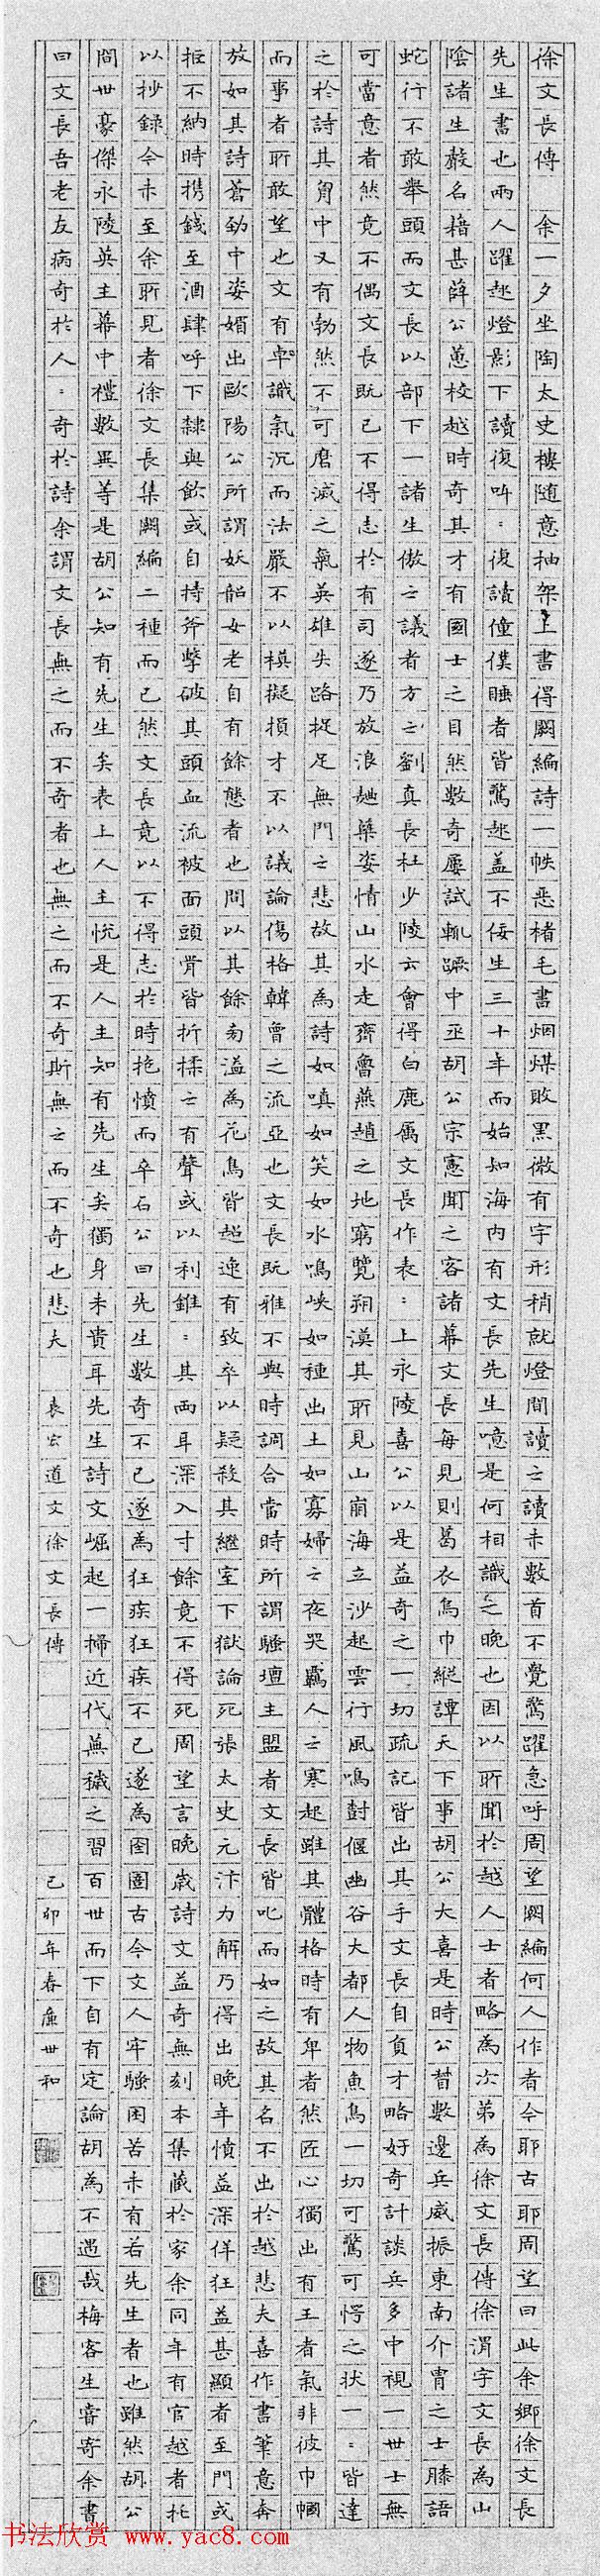 徐文長傳 余一夕坐陶太史樓随意抽架上書得闕編詩一帙惡楮毛書烟煤敗黑微有字形稍就燈間讀之讀未數首不覺驚躍急呼周望闕編何人作者今耶古耶周望曰此余鄉徐文長
先生書也兩人躍起燈影下讀復叫：復讀僮僕睡者皆驚起盖不佞生三十年而始知海内有文長先生噫是何相識之晚也因以所聞於越人士者略為次第為徐文長傳徐渭字文長為山
陰諸生嚴名藉甚薛公蕙校越時奇其才有國士之目然數奇屢試輒蹶中丞胡公宗憲聞之客諸幕文長每見則葛衣烏巾縱譚天下事胡公大喜是時公督數邊兵威振東南介胄之士膝語
蛇行不敢舉頭而文長以部下一諸生傲之議者方之劉真長杜少陵云會得白鹿屬文長作表：上永陵喜公以是益奇之一切疏記皆出其手文長自負才略好奇計談兵多中視一世士無
可當意者然竟不偶文長既已不得志於有司遂乃放浪麯蘖姿情山水走齊魯燕趙之地窮覽朔漠其所見山崩海立沙起雲行風鳴對偃幽谷大都人物魚鳥一切可驚可愕之状一：皆達
之於詩其胷中又有勃然不可磨滅之氣英雄失路托足無門之悲故其為詩如嗔如笑如水鳴峽如種出土如寡婦之夜哭羈人之寒起雖其體格時有卑者然匠心獨出有王者氣非彼巾幗
而事者所敢望也文有卓識氣沉而法嚴不以模擬損才不以議論傷格韓曾之流亞也文長既雅不與時調合當時所謂騷壇主盟者文長皆叱而如之故其名不出於越悲夫喜作書筆意奔
放如其詩蒼勁中姿媚出歐陽公所謂妖韶女老自有餘態者也間以其餘旁溢為花鳥皆超逸有致卒以疑殺其繼室下獄論死張太史元汴力解乃得出晚年憤益深佯狂益甚顯者至門或
拒不納時携錢至酒肆呼下隸與飲或自持斧擊破其頭血流被面頭骨皆折揉之有聲或以利錐：其兩耳深入寸餘竟不得死周望言晚歲詩文益奇無刻本集藏於家余同年有官越者托
以抄錄今未至余所見者徐文長集闕編二種而已然文長竟以不得志於時抱憤而卒石公曰先生數奇不已遂為狂疾狂疾不已遂為囹圄古今文人牢騷困苦未有若先生者也雖然胡公
間世豪傑永陵英主幕中禮數異等是胡公知有先生矣表上人主悅是人主知有先生矣獨身未貴耳先生詩文崛起一掃近代蕪穢之習百世而下自有定論胡為不遇哉梅客生嘗寄余書
曰文長吾老友病奇於人：奇於詩余謂文長無之而不奇者也無之而不奇斯無之而不奇也悲夫 袁宏道文徐文長傳 己卯年春 世和
书法欣赏 www.yac8.com